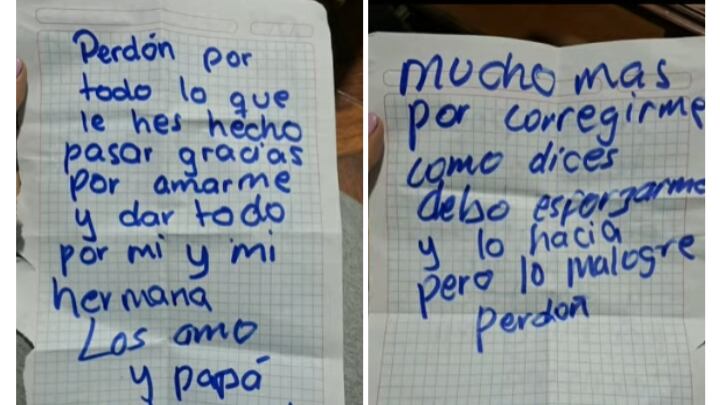 Perdón por
todo lo que
le hes hecho
pasar gracias
por amarme
y dar todo
por mi y mi
hermana
Los amo
y papá
mucho mas
por corregirme
como dices
debo esforzarme
y lo hacia
pero lo malogre
perdon